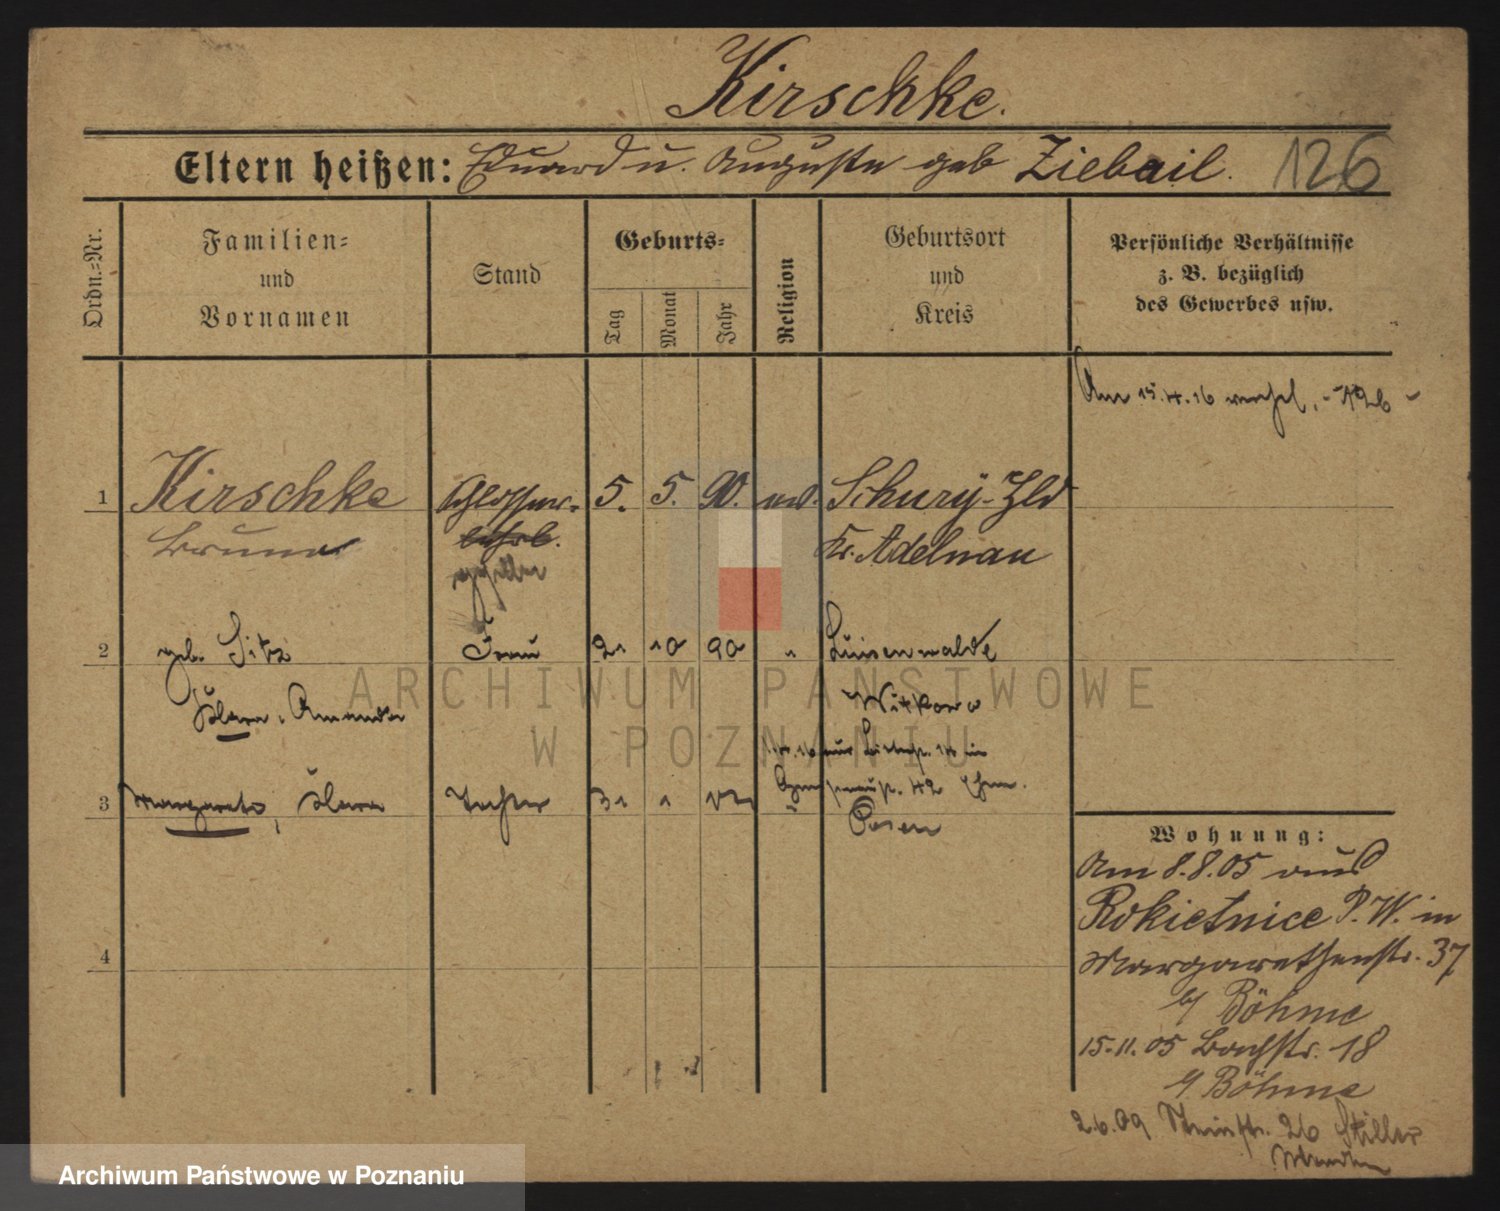 Kirschke.
Eltern heißen: Eduard u. Auguste geb Ziebail. 126
Ordn.-Nr.
Familien- und Vornamen
Stand
Geburts-
Tag
Monat
Jahr
Religion
Geburtsort und Kreis
Persönliche Verhältnisse z. B. bezüglich des Gewerbes usw.
Am 15.4.16
1 Kirschke Schlosser- 5. 5. 90.
Bruno lehrl.
Kr. Adelnau
geselle
2 geb. Frau 21 10 90 " Luisenwalde
Klara, Amanda
Witkowo
3 Margarete, Klara Tochter 31 1
Posen
Wohnung:
Am 8.8.05 aus
Rokietnice P. W. in
Margarethenstr. 37
b/ Böhme
4
15.11.05 Bachstr. 18
b/ Böhme
2.6.09 26 Stiller
ARCHIWUM PAŃSTWOWE
W POZNANIU
Archiwum Państwowe w Poznaniu